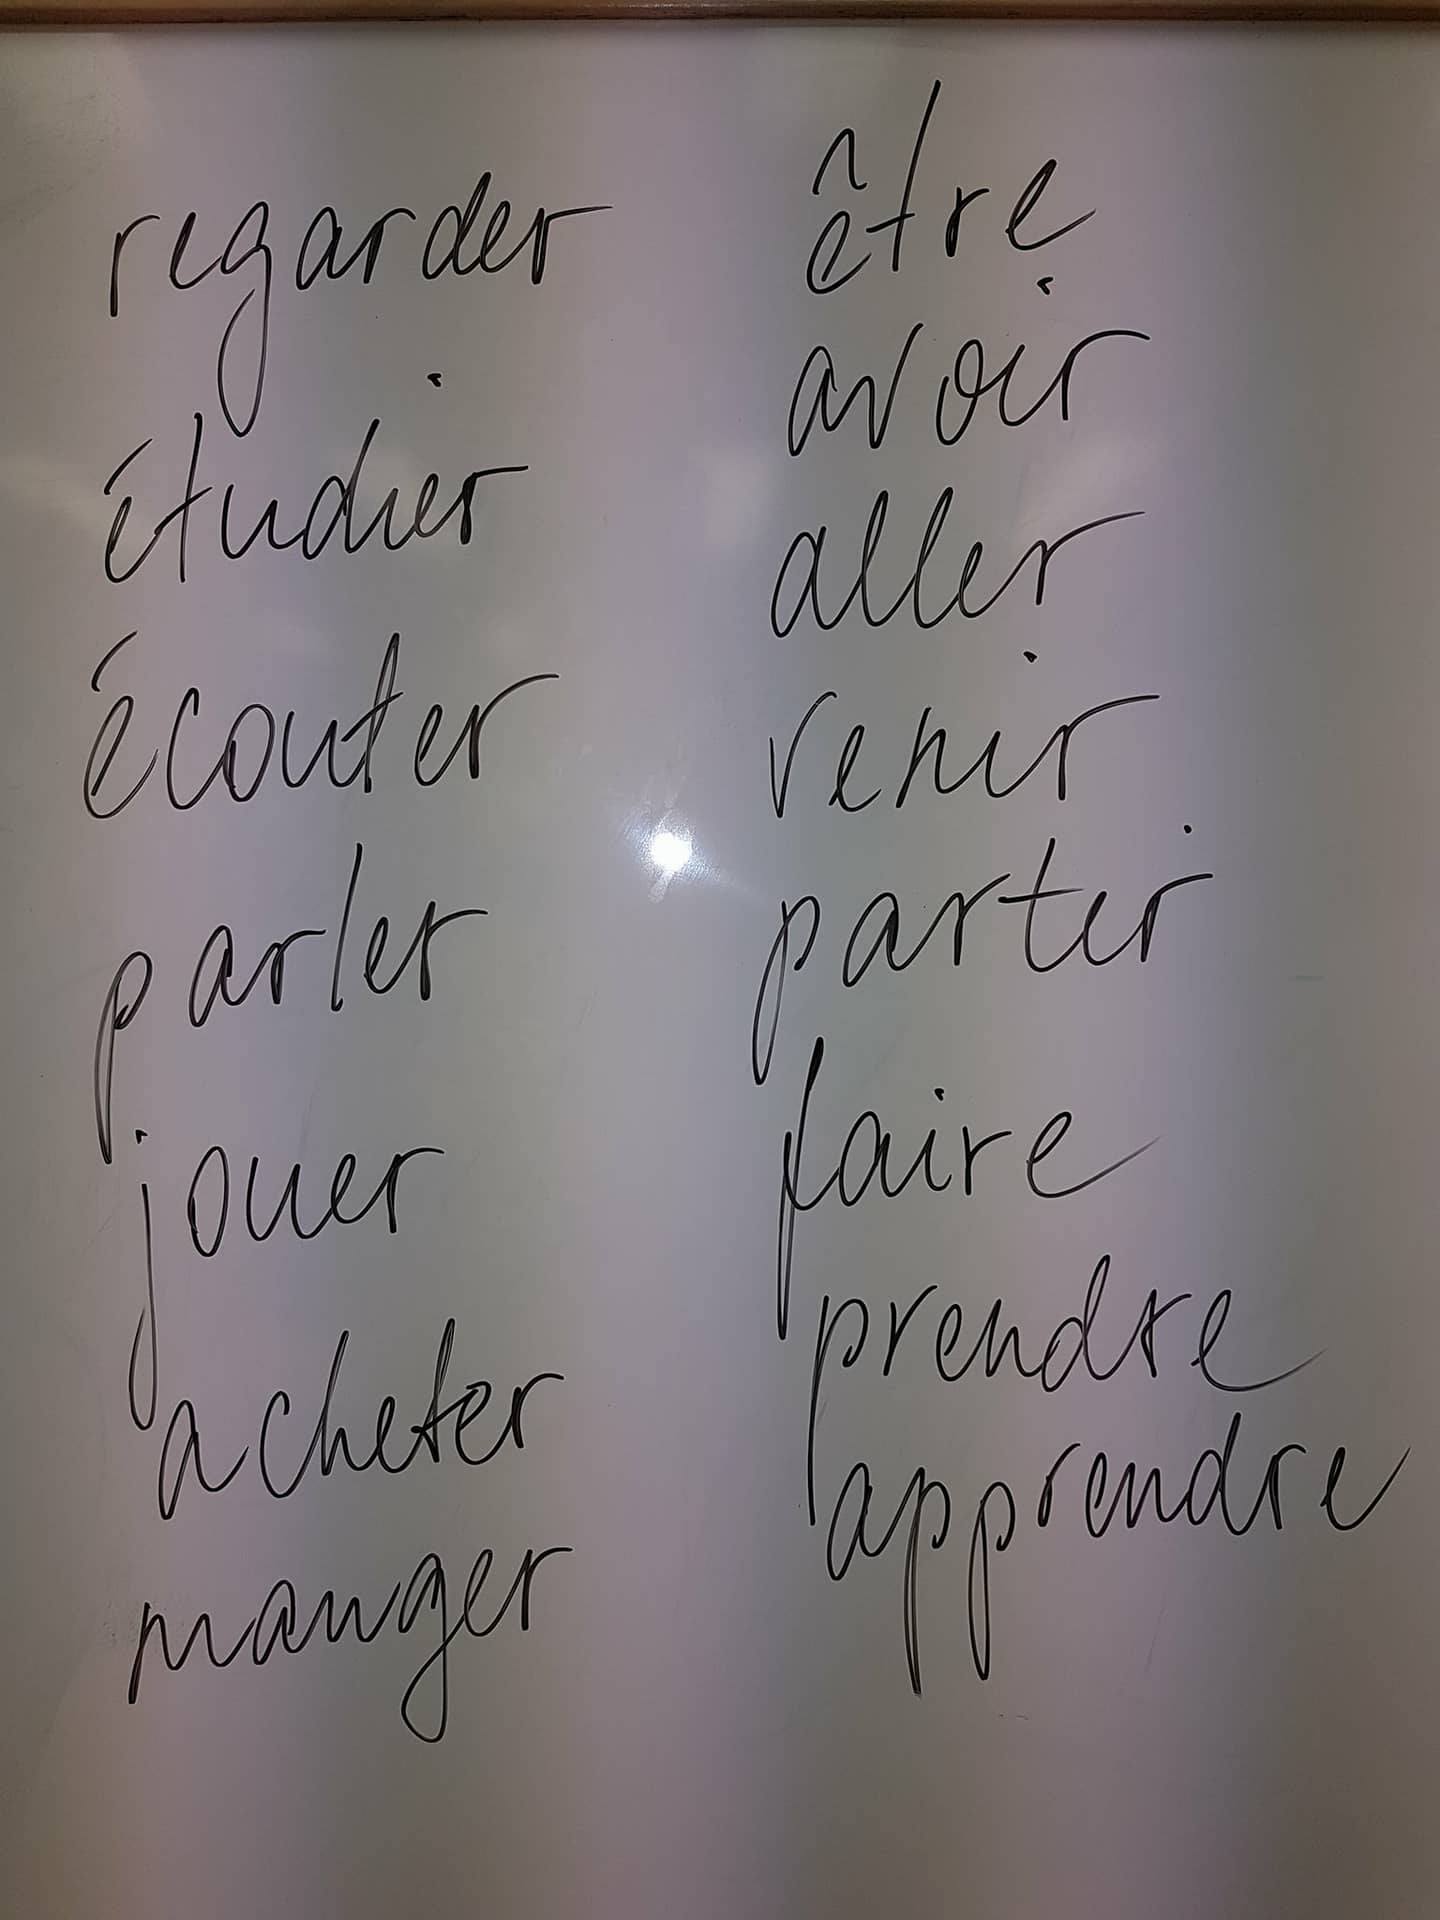 regarder
étudier
écouter
parler
jouer
acheter
manger
être
avoir
aller
venir
partir
faire
prendre
apprendre